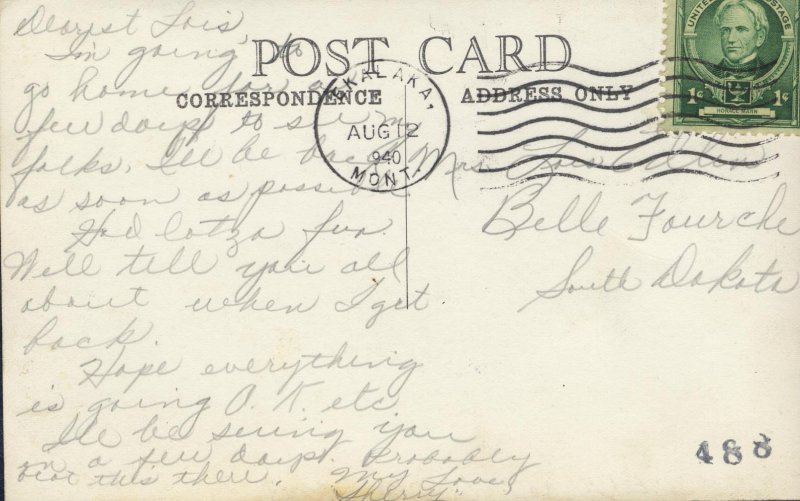 POST CARD
CORRESPONDENCE
ADDRESS ONLY
UNITED STATES POSTAGE
1¢ 1¢
HORACE MANN
EKALAKA,
AUG 12
1940
MONT.
Dearest Lois,
I'm going to
go home for a
few days to see my
folks. I'll be back
as soon as possible
Had lotza fun.
Will tell you all
about when I get
back.
Hope everything
is going O.K. etc
I'll be seeing you
in a few days. Probably
this there.
My Love,
Sherry.
Mrs Lois
Belle Fourche
South Dakota
488